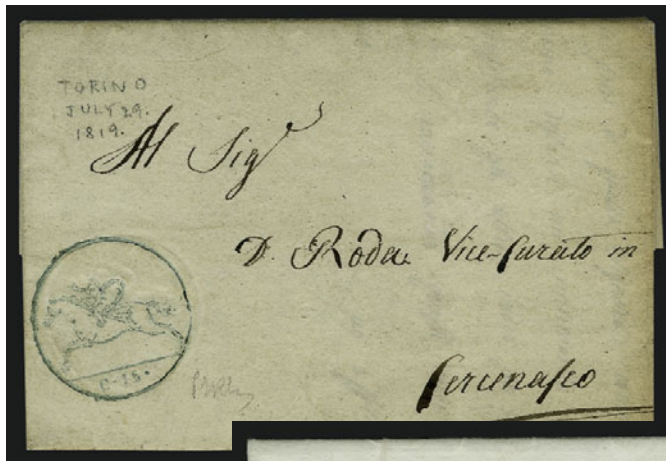 TORINO
JULY 29.
1819.
Al Sigr
D. Roda Vice-Curato in
Cercenasco
C. 15.